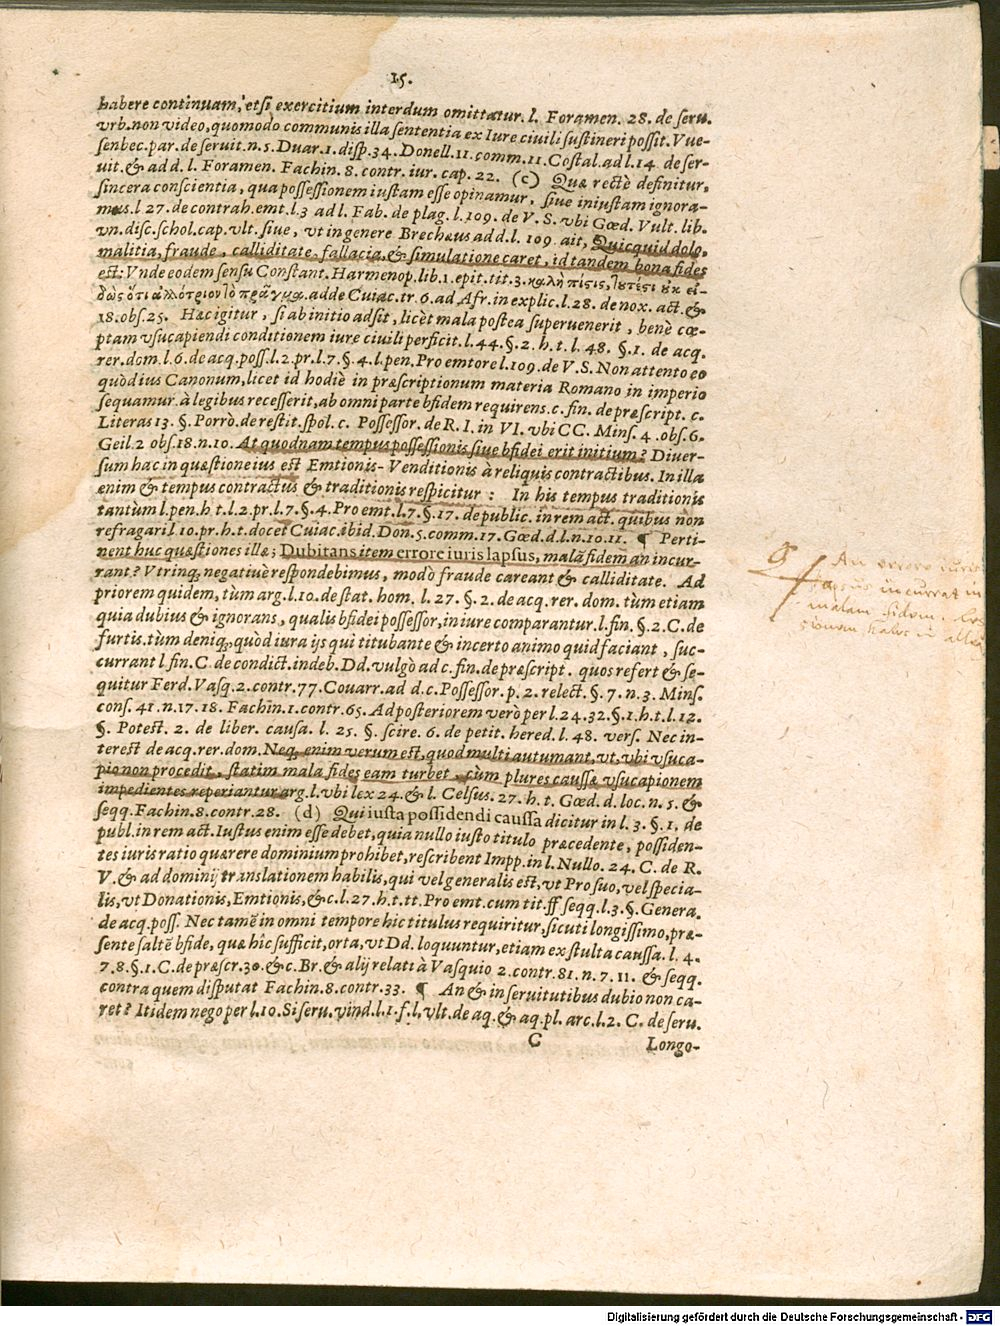 15.
habere continuam, etsi exercitium interdum omittatur. l. Foramen. 28. de seru.
vrb. non video, quomodo communis illa sententia ex Iure ciuili sustineri possit. Vue-
senbec. par. de seruit. n. 5. Duar. 1. disp. 34. Donell. 11. comm. 11. Costal. ad l. 14. de ser-
uit. & ad d. l. Foramen. Fachin. 8. contr. iur. cap. 22. (c) Quæ rectè definitur,
sincera conscientia, qua possessionem iustam esse opinamur, siue iniustam ignora-
mus. l 27. de contrah. emt. l. 3 ad l. Fab. de plag. l. 109. de V. S. vbi Gœd. Vult. lib.
vn. disc. schol. cap. vlt. siue, vt in genere Brechæus ad d. l. 109. ait, Quicquid dolo,
malitia, fraude, calliditate, fallacia, & simulatione caret, id tandem bona fides
est: Vnde eodem sensu Constant. Harmenop. lib. 1. epit. tit. 3. καλὴ πίςις, τουτέςι ουκ εἰ-
δὼς ὅτι ἀλλότριον τὸ πρᾶγμα. adde Cuiac. tr. 6. ad Afr. in explic. l. 28. de nox. act. &
18. obs. 25. Hac igitur, si ab initio adsit, licèt mala postea superuenerit, benè cœ-
ptam vsucapiendi conditionem iure ciuili perficit. l. 44. §. 2. h. t. l. 48. §. 1. de acq.
rer. dom. l. 6. de acq. poss. l. 2. pr. l. 7. §. 4. l. pen. Pro emtore l. 109. de V. S. Non attento eo
quòd ius Canonum, licet id hodiè in præscriptionum materia Romano in imperio
sequamur. à legibus recesserit, ab omni parte bfidem requirens. c. fin. de præscript. c.
Literas 13. §. Porrò. de restit. spol. c. Possessor. de R. I. in VI. vbi CC. Mins. 4. obs. 6.
Geil. 2 obs. 18. n. 10. At quodnam tempus possessionis siue bfidei erit initium? Diuer-
sum hac in quæstione ius est Emtionis-Venditionis à reliquis contractibus. In illa
enim & tempus contractus & traditionis respicitur: In his tempus traditionis
tantùm l. pen. h. t. l. 2. pr. l. 7. §. 4. Pro emt. l. 7. §. 17. de public. in rem act. quibus non
refragari l 10. pr. h. t. docet Cuiac. ibid. Don. 5. comm. 17. Gœd. d. l. n. 10. 11. ¶ Perti-
nent huc quæstiones illæ; Dubitans item errore iuris lapsus, malã fidem an incur-
rant? Vtrinq; negatiuè respondebimus, modò fraude careant & calliditate. Ad
priorem quidem, tùm arg. l. 10. de stat. hom. l. 27. §. 2. de acq. rer. dom. tùm etiam
quia dubius & ignorans, qualis bfidei possessor, in iure comparantur. l. fin. §. 2. C. de
furtis. tùm deniq; quòd iura ijs qui titubante & incerto animo quid faciant, suc-
currant l. fin. C. de condict. indeb. Dd. vulgò ad c. fin. de præscript. quos refert & se-
quitur Ferd. Vasq. 2. contr. 77. Couarr. ad d. c. Possessor. p. 2. relect. §. 7. n. 3. Mins.
cons. 41. n. 17. 18. Fachin. 1. contr. 65. Ad posteriorem verò per l. 24. 32. §. 1. h. t. l. 12.
§. Potest. 2. de liber. causa. l. 25. §. scire. 6. de petit. hered. l. 48. vers. Nec in-
terest de acq. rer. dom. Neq; enim verum est, quod multi autumant, vt, vbi vsuca-
pio non procedit, statim mala fides eam turbet, cùm plures caussæ vsucapionem
impedientes reperiantur arg. l. vbi lex 24. & l. Celsus. 27. h. t. Gœd. d. loc. n. 5. &
seqq. Fachin. 8. contr. 28. (d) Qui iusta possidendi caussa dicitur in l. 3. §. 1. de
publ. in rem act. Iustus enim esse debet, quia nullo iusto titulo præcedente, possiden-
tes iuris ratio quærere dominium prohibet, rescribent Impp. in l. Nullo. 24. C. de R.
V. & ad dominij translationem habilis, qui vel generalis est, vt Pro suo, vel specia-
lis, vt Donationis, Emtionis, &c. l. 27. h. t. tt. Pro emt. cum tit. ff seqq. l. 3. §. Genera.
de acq. poss. Nec tamẽ in omni tempore hic titulus requiritur, sicuti longissimo, præ-
sente saltẽ bfide, quæ hìc sufficit, orta, vt Dd. loquuntur, etiam ex stulta caussa. l. 4.
7. 8. §. 1. C. de præscr. 30. &c. Br. & alij relati à Vasquio 2. contr. 81. n. 7. 11. & seqq.
contra quem disputat Fachin. 8. contr. 33. ¶ An & in seruitutibus dubio non ca-
ret? Itidem nego per l. 10. Si seru. vind. l. 1. f. l. vlt. de aq. & aq. pl. arc. l. 2. C. de seru.
C Longo-
An errore iuris
lapsus incurrat in
malam fidem.
Digitalisierung gefördert durch die Deutsche Forschungsgemeinschaft - DFG